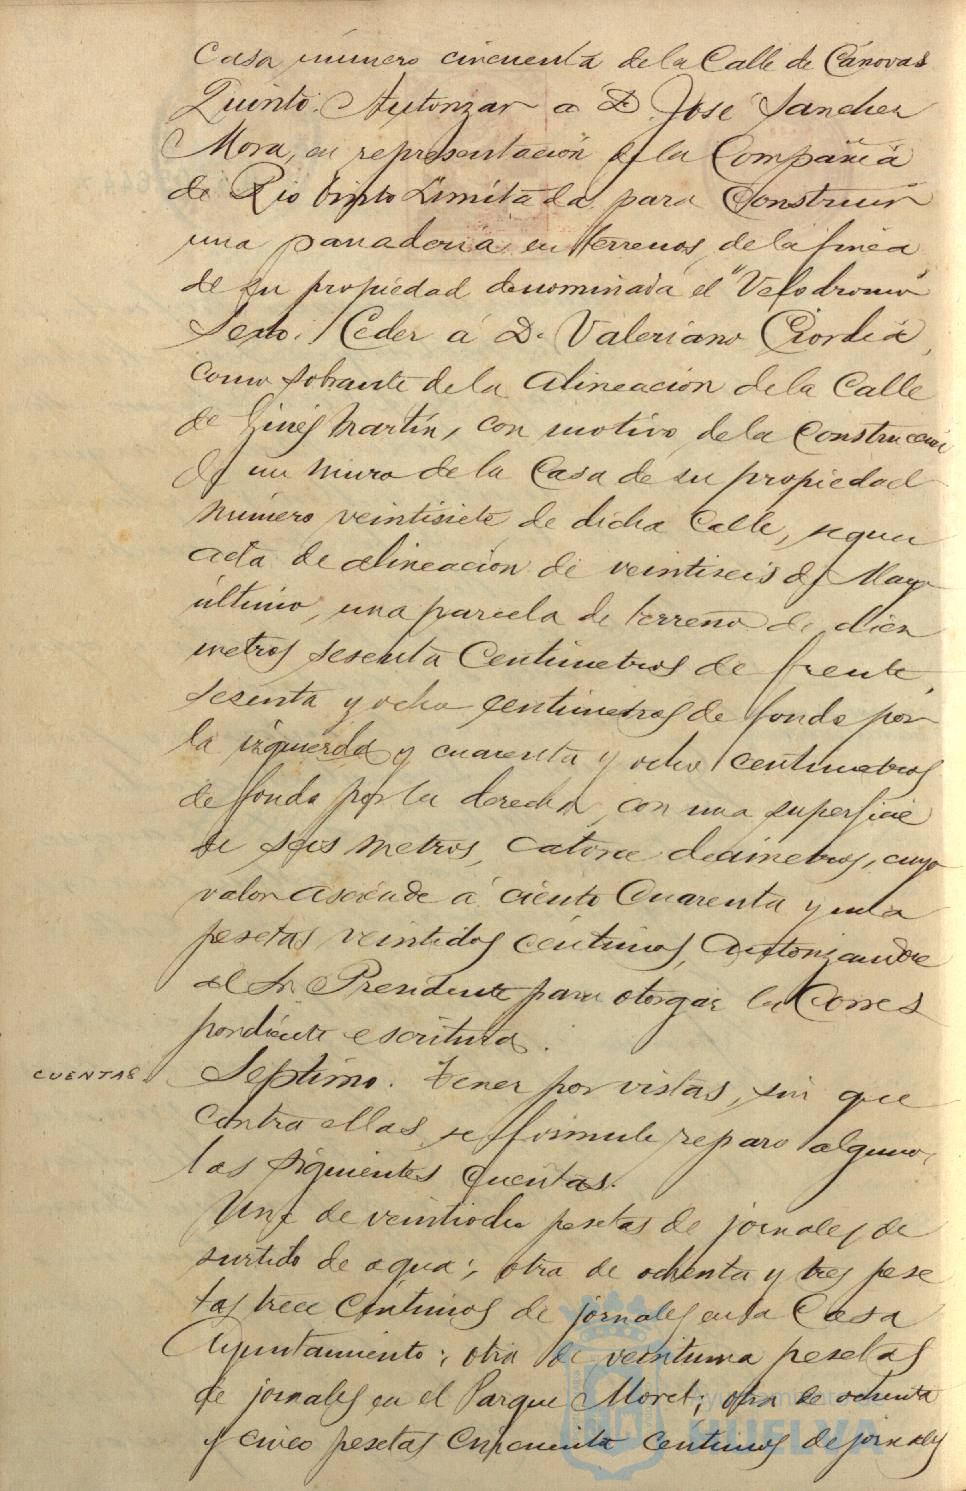 Casa número cincuenta de la Calle de Cánovas
Quinto. Autorizar a D. José Sanchez
Mora, en representación de la Compañia
de Rio Tinto Limitada para Construir
una panaderia en terrenos de la finca
de su propiedad denominada el "Velodromo"
Sexto. Ceder á D. Valeriano
como sobrante de la alineación de la Calle
de Ginés Martín, con motivo de la Construcción
de un muro de la Casa de su propiedad
número veintisiete de dicha Calle, segun
acta de alineación de veintiseis de Mayo
último, una parcela de terreno de diez
metros sesenta Centimetros de frente,
sesenta y ocho centimetros de fondo por
la izquierda y cuarenta y ocho centimetros
de fondo por la derecha, con una superficie
de seis metros, catorce decimetros, cuyo
valor asciende á ciento Cuarenta y una
pesetas veintidos centimos, autorizandose
al Sr. Presidente para otorgar la Corres
pondiente escritura.
CUENTAS. Septimo. Tener por vistas, sin que
contra ellas se formule reparo alguno,
las siguientes Cuentas.
Una de veintiocho pesetas de jornales de
surtido de agua; otra de ochenta y tres pese
tas trece Centimos de jornales en la Casa
Ayuntamiento; otra de veintiuna pesetas
de jornales en el Parque Moret; otra de ochenta
y cinco pesetas cincuenta centimos de jornales
Ayuntamiento
HUELVA